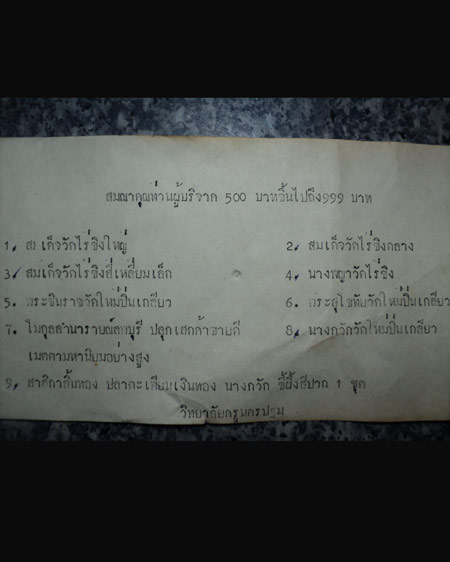 สมณาคุณท่านผู้บริจาค 500 บาทขึ้นไปถึง999 บาท
1, สมเด็จวัดไร่ขิงใหญ่ 2, สมเด็จวัดไร่ขิงกลาง
3, สมเด็จวัดไร่ขิงสี่เหลี่ยมเล็ก 4, นางพญาวัดไร่ขิง
5. พระชินราชวัดใหม่ปิ่นเกลียว 6. พระสุโขทัยวัดใหม่ปิ่นเกลียว
7. ปลุกเสกค้าขายดี 8, นางกวักวัดใหม่ปิ่นเกลียว
เมตตามหานิยมอย่างสูง
9, สาริกาลิ้นทอง ปลาตะเพียนเงินทอง นางกวัก ขี้ผึ้งสีปาก 1 ชุด
วิทยาลัยครูนครปฐม